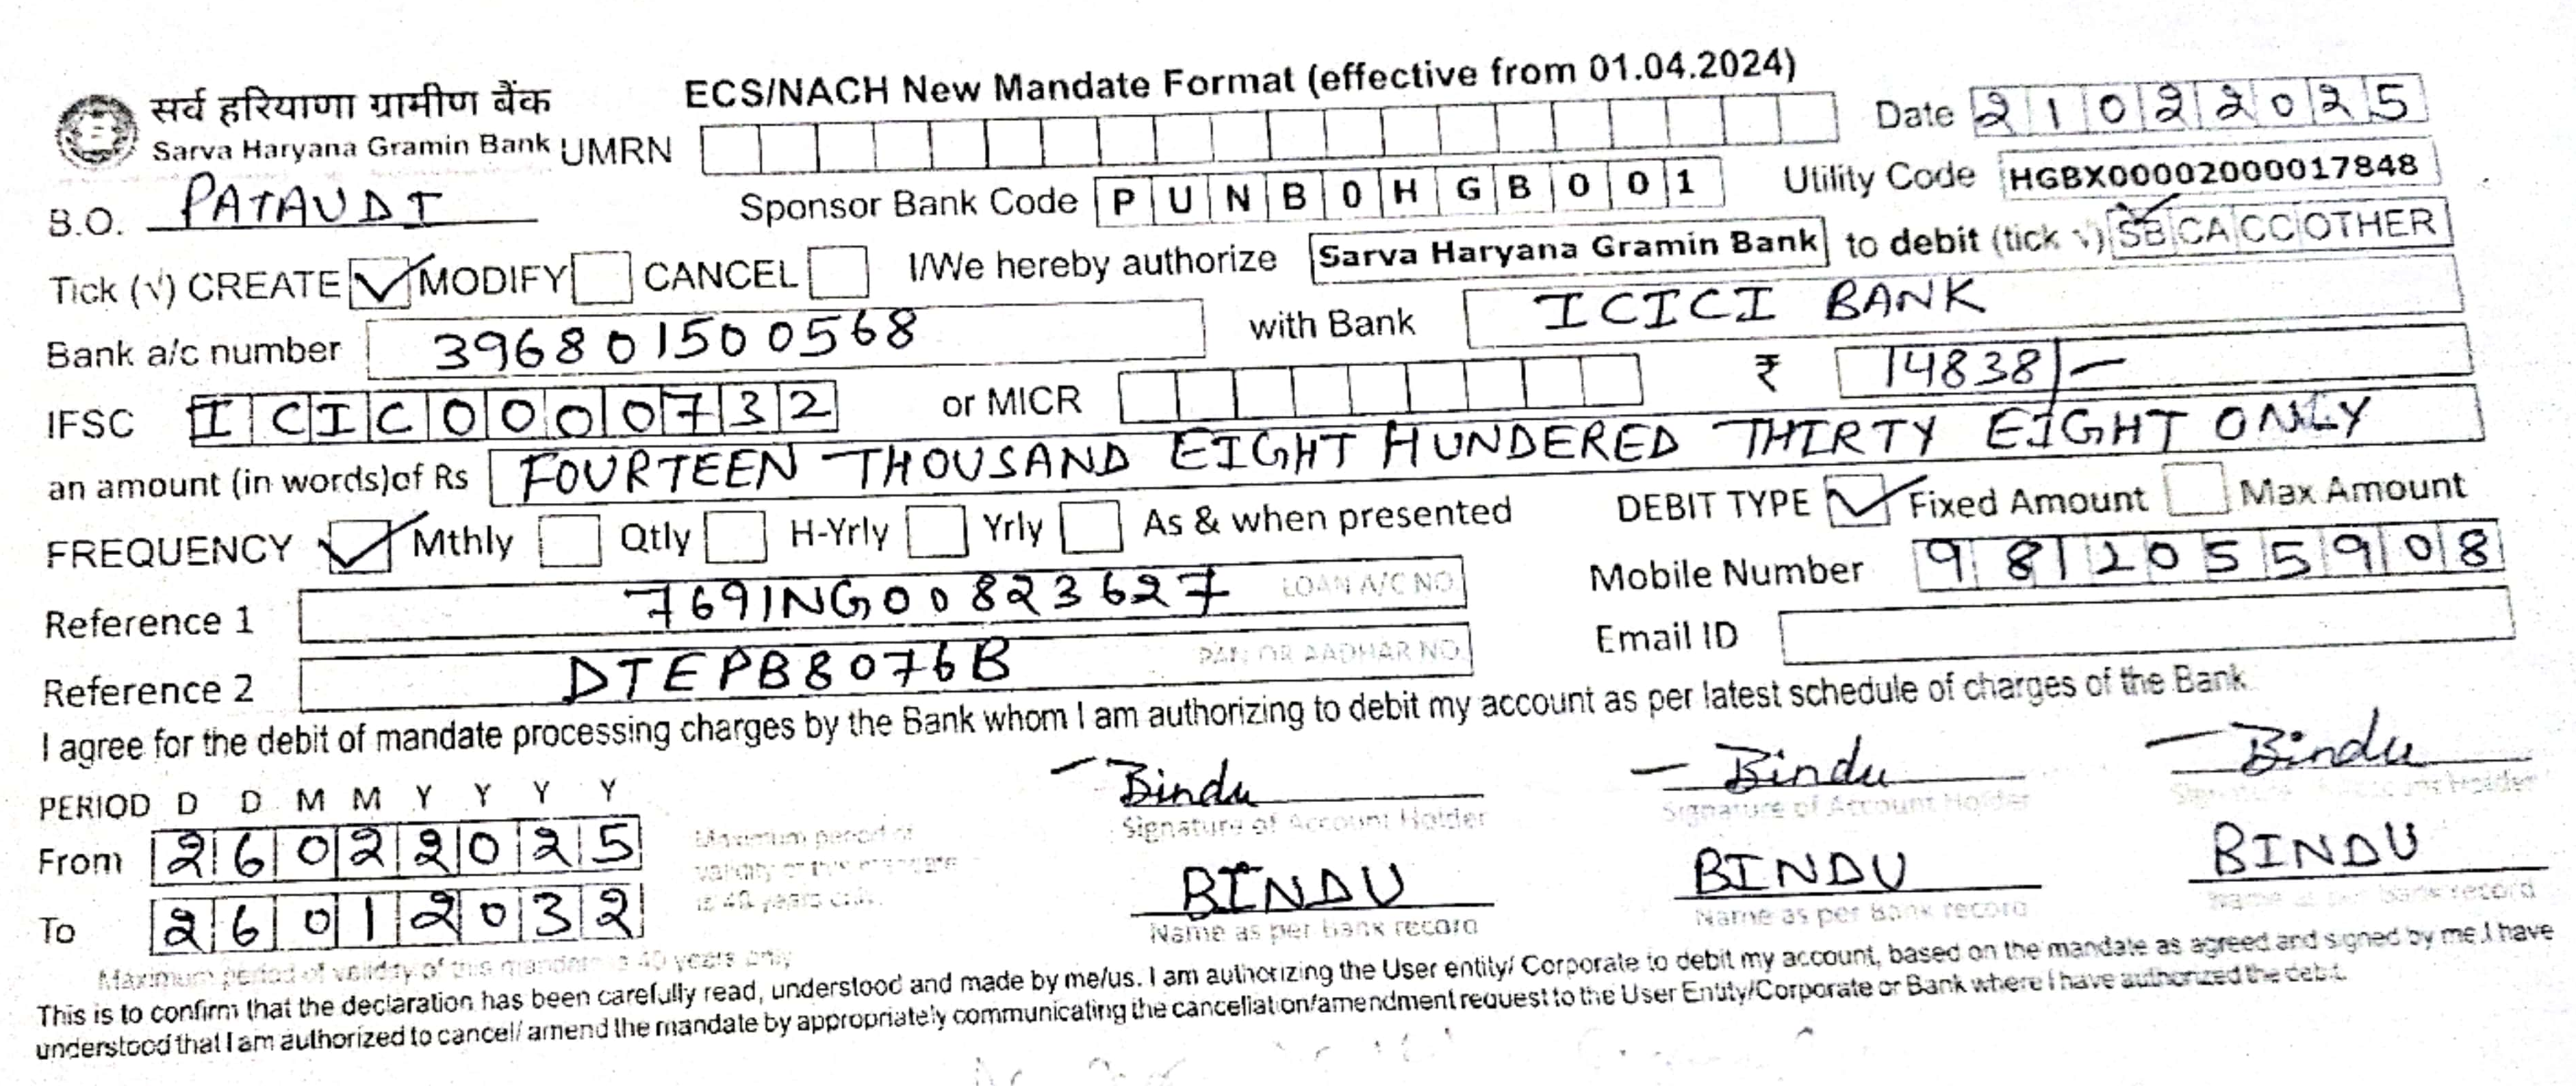 सर्व हरियाणा ग्रामीण बैंक
Sarva Haryana Gramin Bank
ECS/NACH New Mandate Format (effective from 01.04.2024)
UMRN
Date 21022025
B.O. PATAUDI
Sponsor Bank Code PUNB0HGB001
Utility Code HGBX00002000017848
Tick (√) CREATE ✓ MODIFY CANCEL I/We hereby authorize Sarva Haryana Gramin Bank to debit (tick √) SB CA CC OTHER
Bank a/c number 396801500568 with Bank ICICI BANK
IFSC ICIC0000732 or MICR ₹ 14838/-
an amount (in words)of Rs FOURTEEN THOUSAND EIGHT HUNDERED THIRTY EIGHT ONLY
FREQUENCY ✓ Mthly Qtly H-Yrly Yrly As & when presented DEBIT TYPE ✓ Fixed Amount Max Amount
Reference 1 769ING00823627 LOAN A/C NO. Mobile Number 9812055908
Reference 2 DTEPB8076B PAN OR AADHAR NO. Email ID
I agree for the debit of mandate processing charges by the Bank whom I am authorizing to debit my account as per latest schedule of charges of the Bank
PERIOD D D M M Y Y Y Y
From 26022025
To 26012032
Maximum period of validity of this mandate is 40 years only.
Bindu Bindu Bindu
Signature of Account Holder Signature of Account Holder Signature of Account Holder
BINDU BINDU BINDU
Name as per bank record Name as per Bank record Name as per Bank record
Maximum period of validity of this mandate is 40 years only
This is to confirm that the declaration has been carefully read, understood and made by me/us. I am authorizing the User entity/ Corporate to debit my account, based on the mandate as agreed and signed by me.I have
understood that I am authorized to cancel/ amend the mandate by appropriately communicating the cancellation/amendment request to the User Entity/Corporate or Bank where I have authorized the debit.